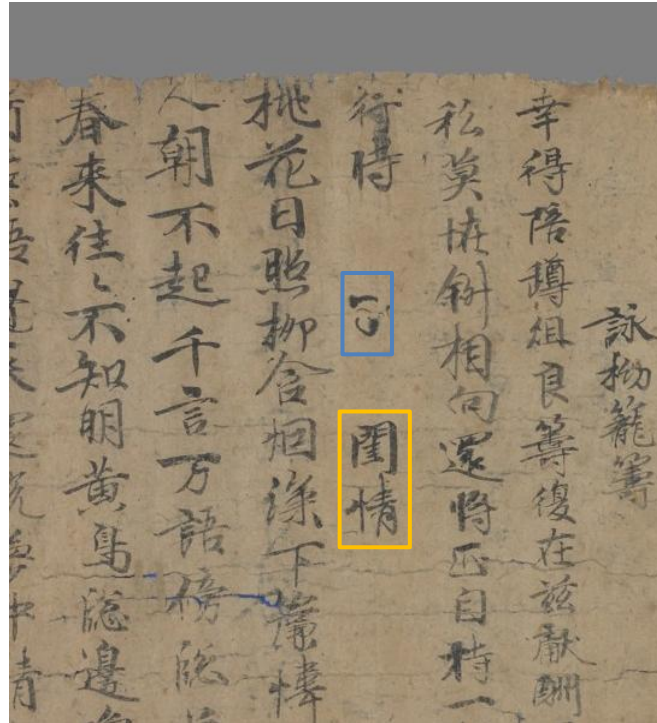 詠拗籠籌
幸得陪罇俎良籌復在茲獻酬
私莫恠斜相向還將正自持一
行時 閨情
桃花日照柳含烟 下簾幃
人朝不起千言万語傍窓
春来往々不知明黄鳥窓邊